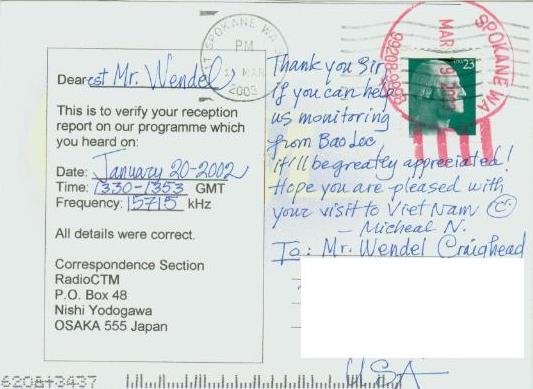 Dearest Mr. Wendel
This is to verify your reception
report on our programme which
you heard on:
Date: January 20-2002
Time: 1330-1353 GMT
Frequency: 15715 kHz
All details were correct.
Correspondence Section
RadioCTM
P.O. Box 48
Nishi Yodogawa
OSAKA 555 Japan
SPOKANE WA
PM
MAR
2003
Thank you Sir,
if you can help
us monitoring
from Bao Loc,
it'll be greatly appreciated!
Hope you are pleased with
your visit to Viet Nam
- Micheal N.
To: Mr. Wendel Craighead
USA
USA 23
SPOKANE WA
MAR